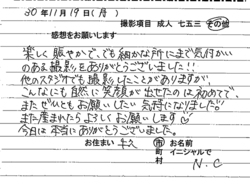 30年11月19日(月)
撮影項目 成人 七五三 その他
感想をお願いします
楽しく賑やかで、でも細かな所にまで気付かい
のある撮影をありがとうございました!!
他のスタジオでも撮影したことがありますが、
こんなにも自然に笑顔が出せたのは初めてで
またぜひともお願いしたい気持になりました!!
また産まれたらよろしくお願いします
今日は本当にありがとうございました。
お住まい
市
町
村
イニシャルで
N.C